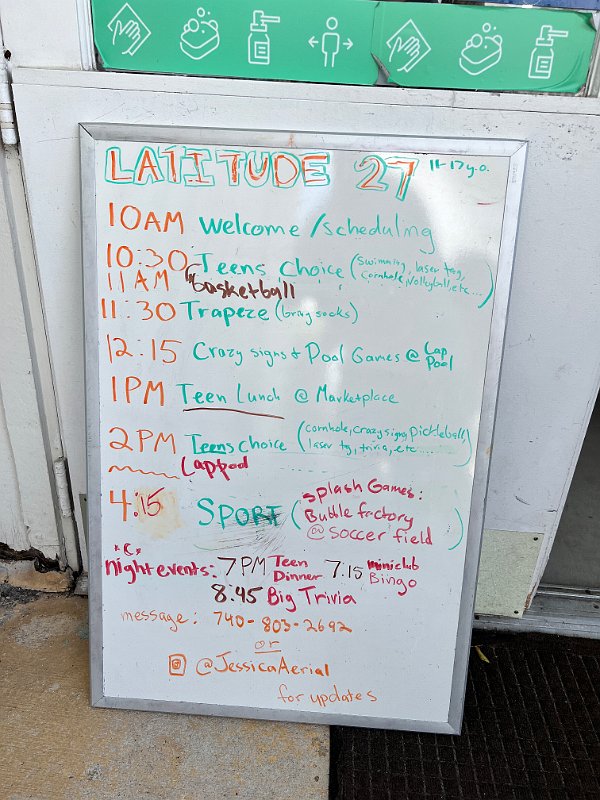 LATITUDE 27 11-17 y.o.
10AM Welcome/scheduling
10:30 Teens Choice (swimming, laser tag,
cornhole, Vollyball, etc...)
11AM basketball
11:30 Trapeze (bring socks)
12:15 Crazy signs + Pool Games @ Lap
Pool
1PM Teen Lunch @ Marketplace
2PM Teens Choice (cornhole, crazy signs, pickleball
laser tg, trivia, etc...)
Lap pool
4:15 SPORT (splash Games:
Bubble factory
@ soccer field)
night events: 7PM Teen
Dinner 7.15 miniclub
Bingo
8.45 Big Trivia
message: 740-803-2692
or
@JessicaAerial
for updates